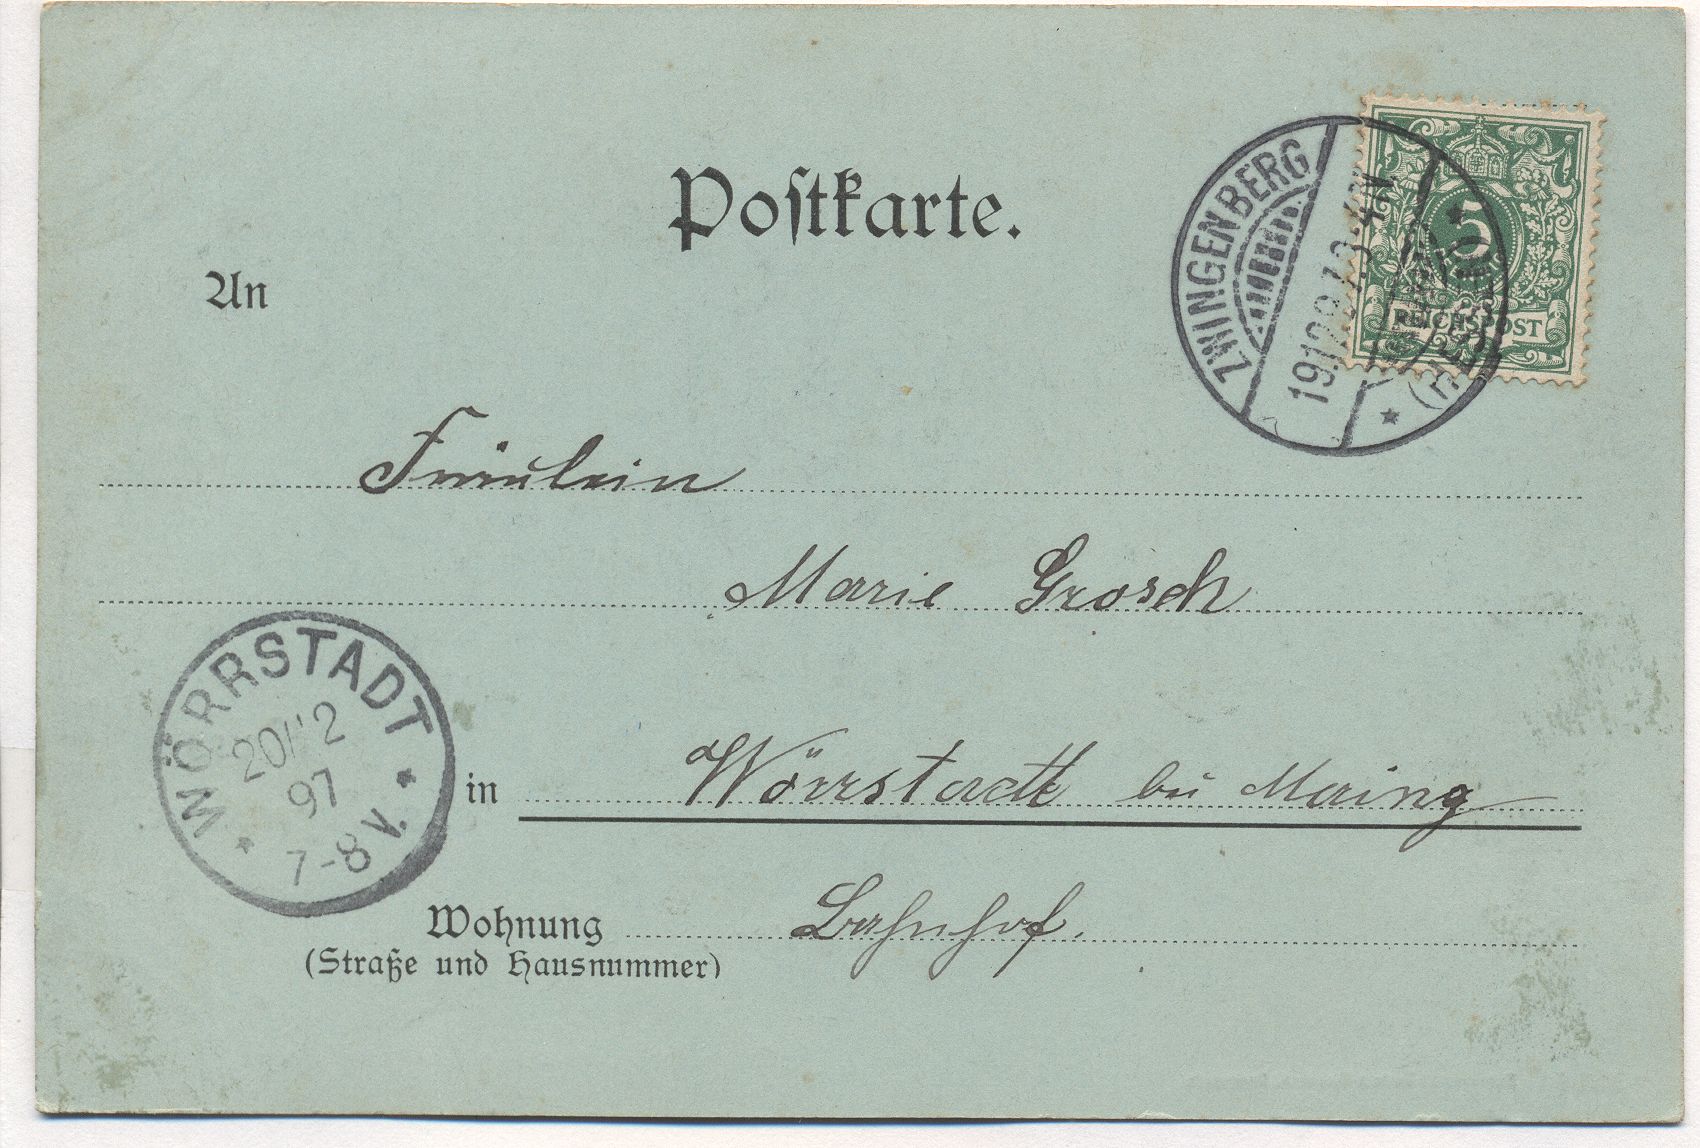 Postkarte.
An
ZWINGENBERG
19.12.97. 3-4N.
(HESSEN)
5
REICHSPOST
Fräulein
Marie Grosch
WÖRRSTADT
20/12
97
7-8V.
in Wörrstadt bei Mainz
Wohnung Bahnhof.
(Straße und Hausnummer)